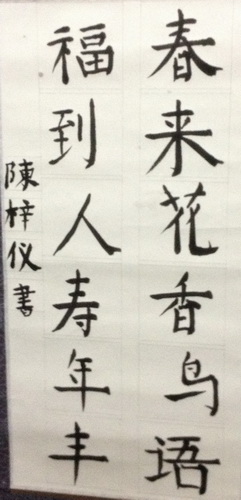 春来花香鸟语
福到人寿年丰
陳梓仪書